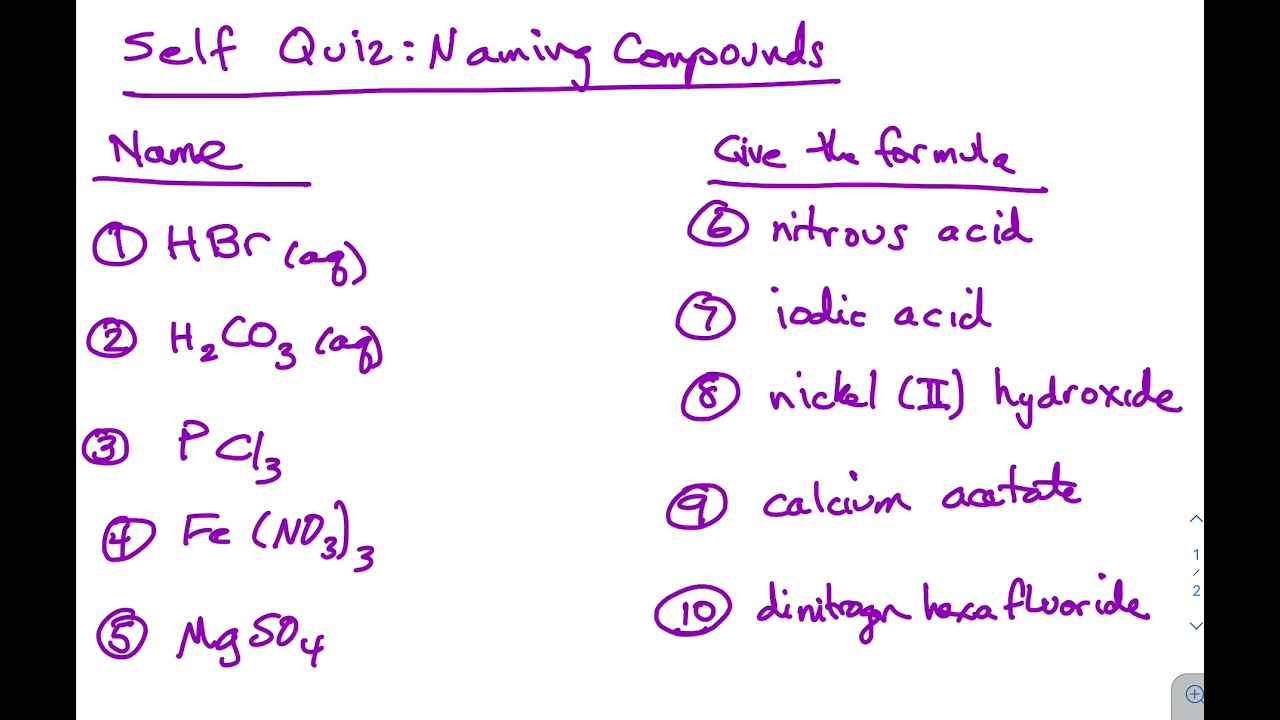 Self Quiz: Naming Compounds
Name
① HBr (aq)
② H₂CO₃ (aq)
③ PCl₃
④ Fe(NO₃)₃
⑤ MgSO₄
Give the formula
⑥ nitrous acid
⑦ iodic acid
⑧ nickel (II) hydroxide
⑨ calcium acetate
⑩ dinitrogn hexafluoride
1
/
2